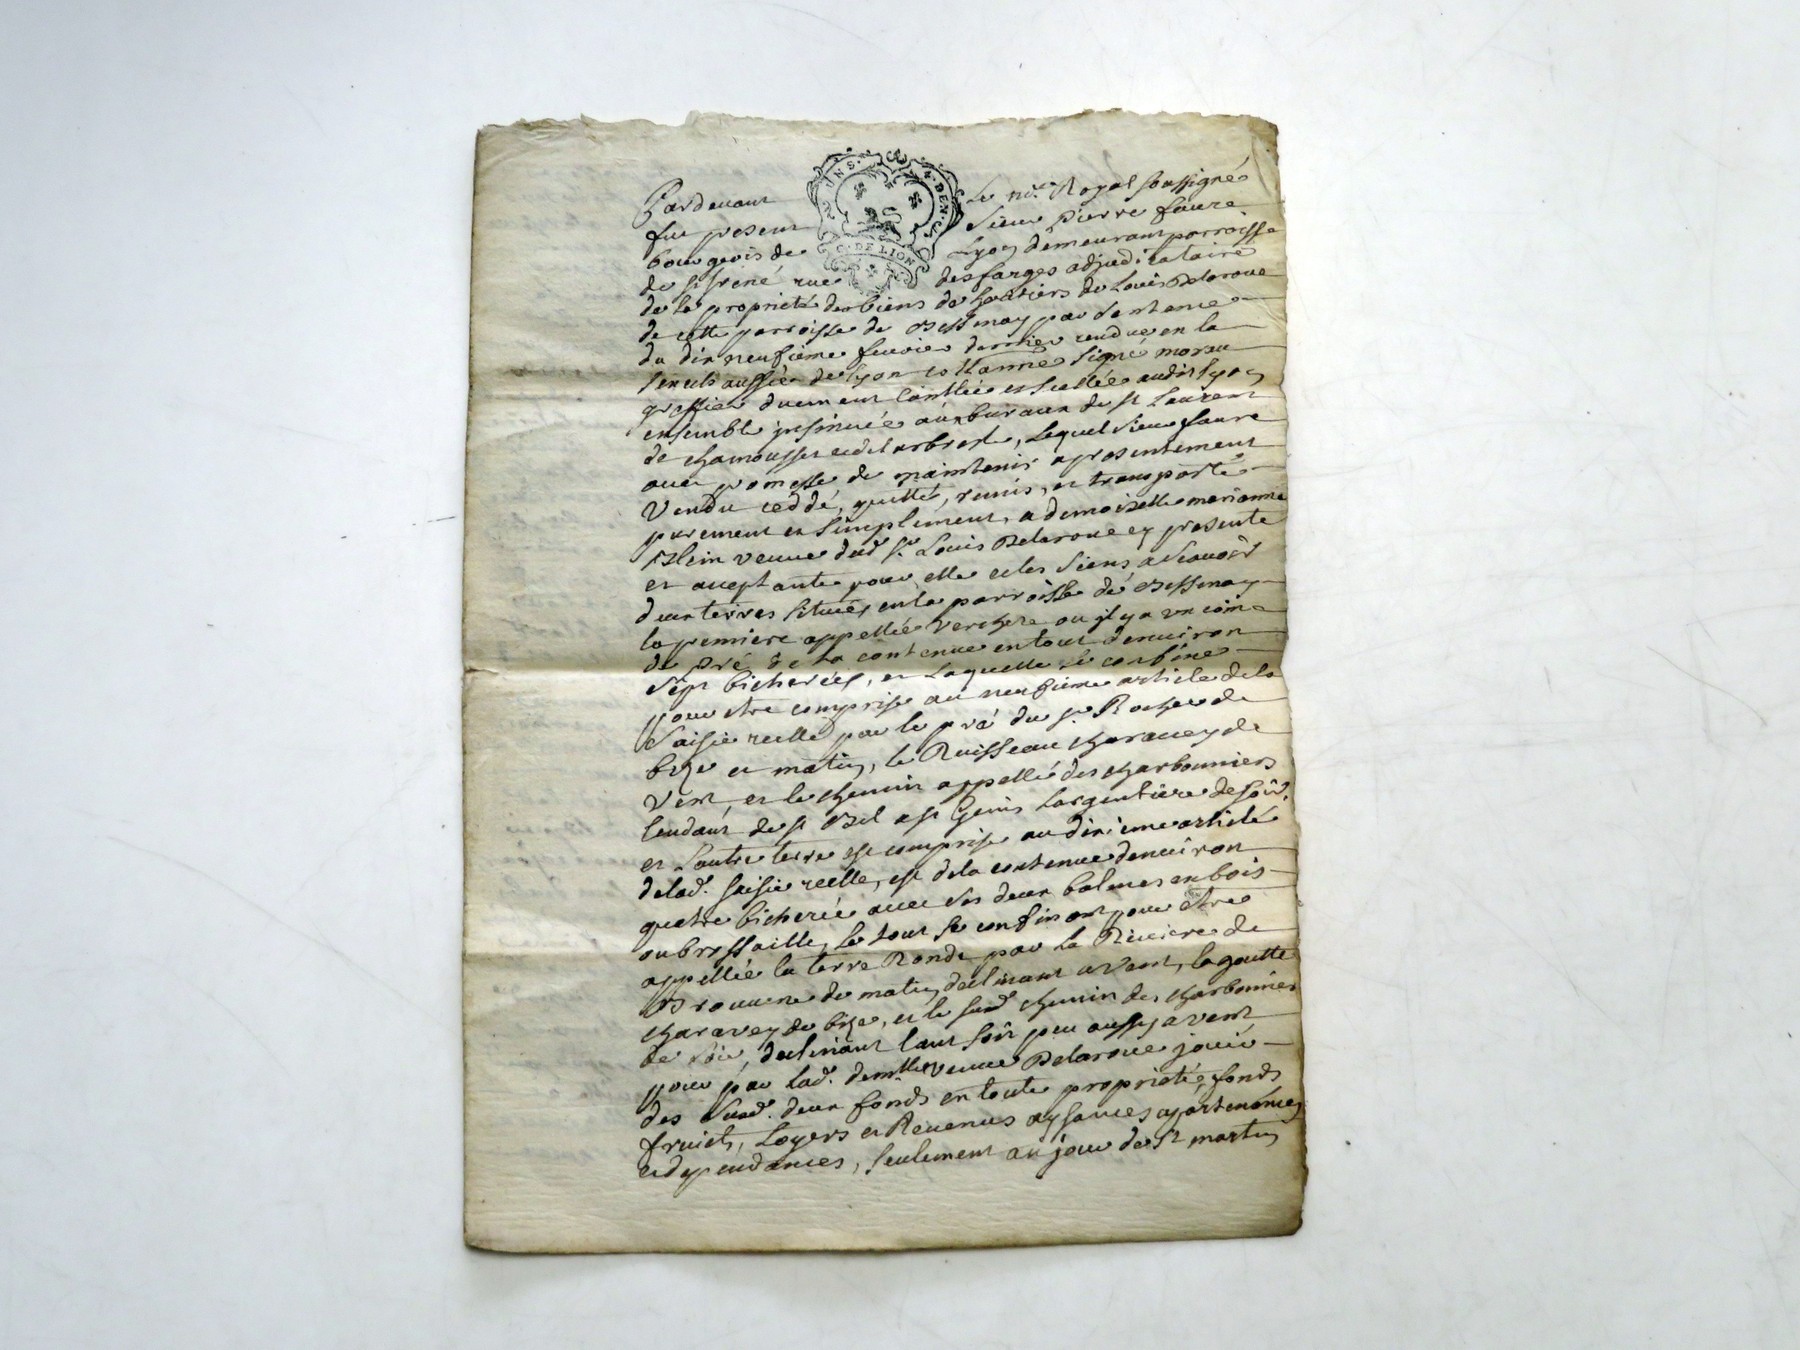 Pardevant Le no.re Royal soussigné
fut present Sieur Pierre faure
bourgeois de Lyon demeurant parroisse
de st irené rue des farges adjudicataire
de la proprieté des biens de Louis Delaroue
de cette parroisse de Bessenay par sentence
du dix neufieme fevrier dernier rendue en la
senechaussée de Lyon signé moreu
greffier duement controllée et scellée audit Lyon
ensemble jnsinuée aux buraux de st Laurent
de chamousset et de Larbresle, Lequel Sieur faure
avec promesse de maintenir a presentement
Vendu ceddé, quitté, remis, et transporté
purement et simplement, a demoiselle marianne
Blein veuve dud. sr. Louis Delaroue cy presente
et aceptante pour elle et les siens a scavoir
deux terres situées en la parroisse de Bessenay
la premiere appellée verchere ou il y a un coin
de Pré de la contenue en tout denviron
sept bicherées, et laquelle se confine
pour etre comprise au neufieme article de la
saisie reelle par le pré du sr. Rocher de
bize et matin, le Ruisseau charavey de
Vent, et le chemin appellé des charbonniers
tendant de st Bel a st Genis Largentiere de soir,
et Lautre terre est comprise au dixieme article
de lad. saisie reelle, est de la contenue denviron
quatre bicherée avec ses deux balmes en bois
ou brossaille, Le tout se confinant pour etre
appellée la terre Ronde par La Riviere de
Brevenne de matin declinant a vent, la goutte
charavey de bize, et le susd. chemin des charbonniers
de soir, declinant tant soit peu aussy a vent
pour par lad. dem.lle veuve Delaroue jouir
des susd. deux fonds en toute proprieté, fonds
fruicts, Loyers et Revenus aysances apartenances
et dependances, seulement au jour de st martin